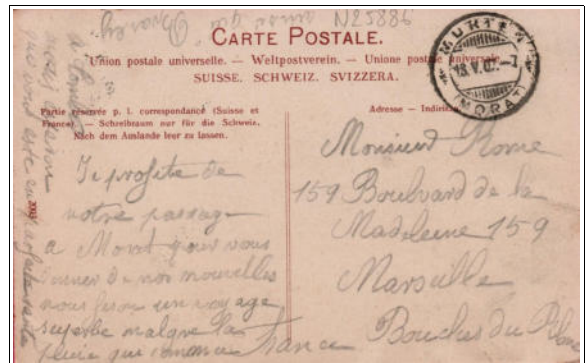 N25886
CARTE POSTALE.
Union postale universelle. — Weltpostverein. — Unione postale universale
SUISSE. SCHWEIZ. SVIZZERA.
MURTEN
18.V.0
MORAT
Partie réservée p. l. correspondance (Suisse et
France). — Schreibraum nur für die Schweiz.
Nach dem Auslande leer zu lassen.
Adresse — Indirizzo
Je profite de
notre passage
a Morat pour vous
donner de nos nouvelles
nous feson un voyage
superbe malgre la
pluie qui comance
Monsieur Rome
159 Boulvard de la
Madeleine 159
Marseille
Bouches du Rhone
France